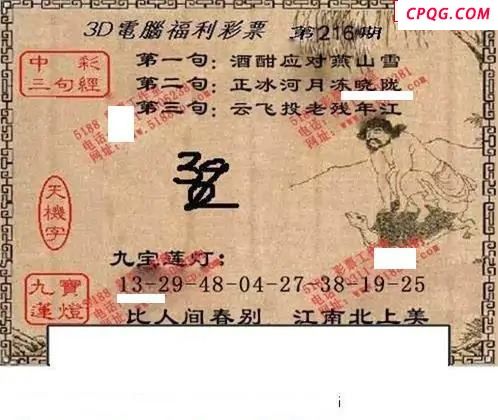 CPQG.COM
3D電腦福利彩票 第216期
中彩三句經
第一句：酒酣应对燕山雪
第二句：正冰河月冻晓陇
第三句：云飞投老残年江
天機字
九宝莲灯：
九寶蓮燈
13-29-48-04-27-38-19-25
比人间春别 江南北上美
i